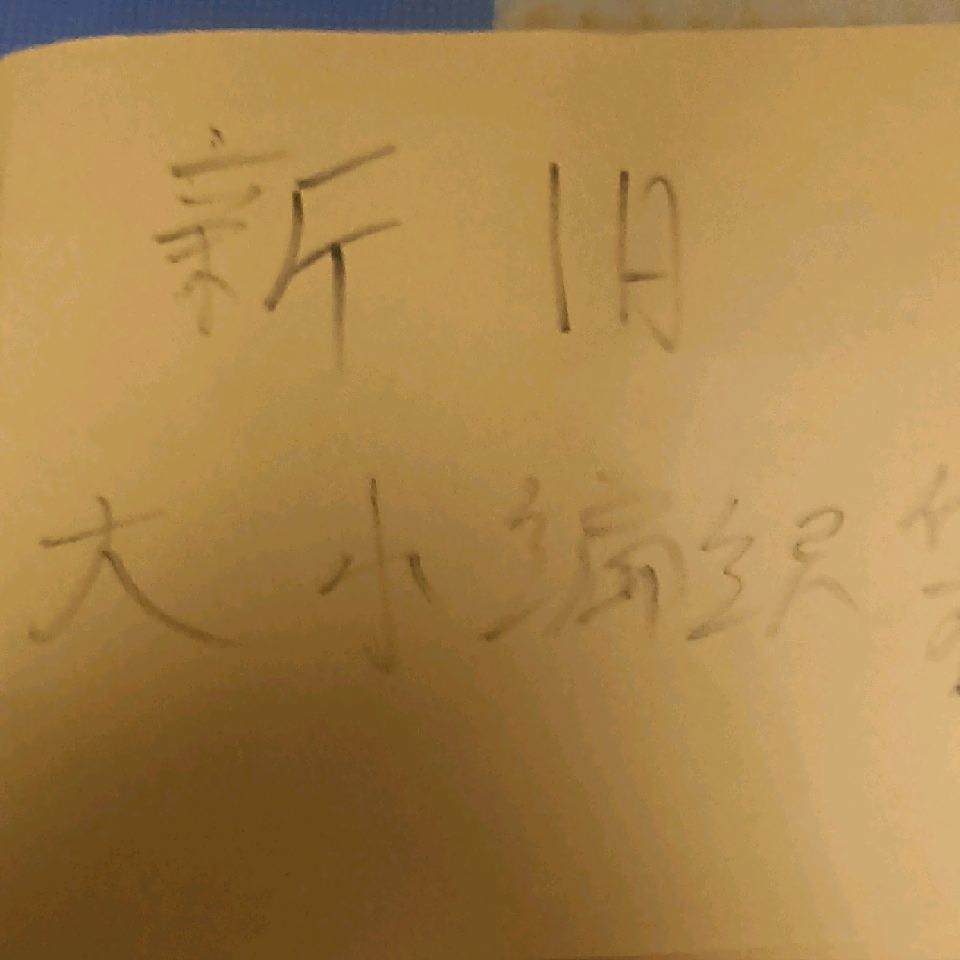 新 旧
大 小 编织